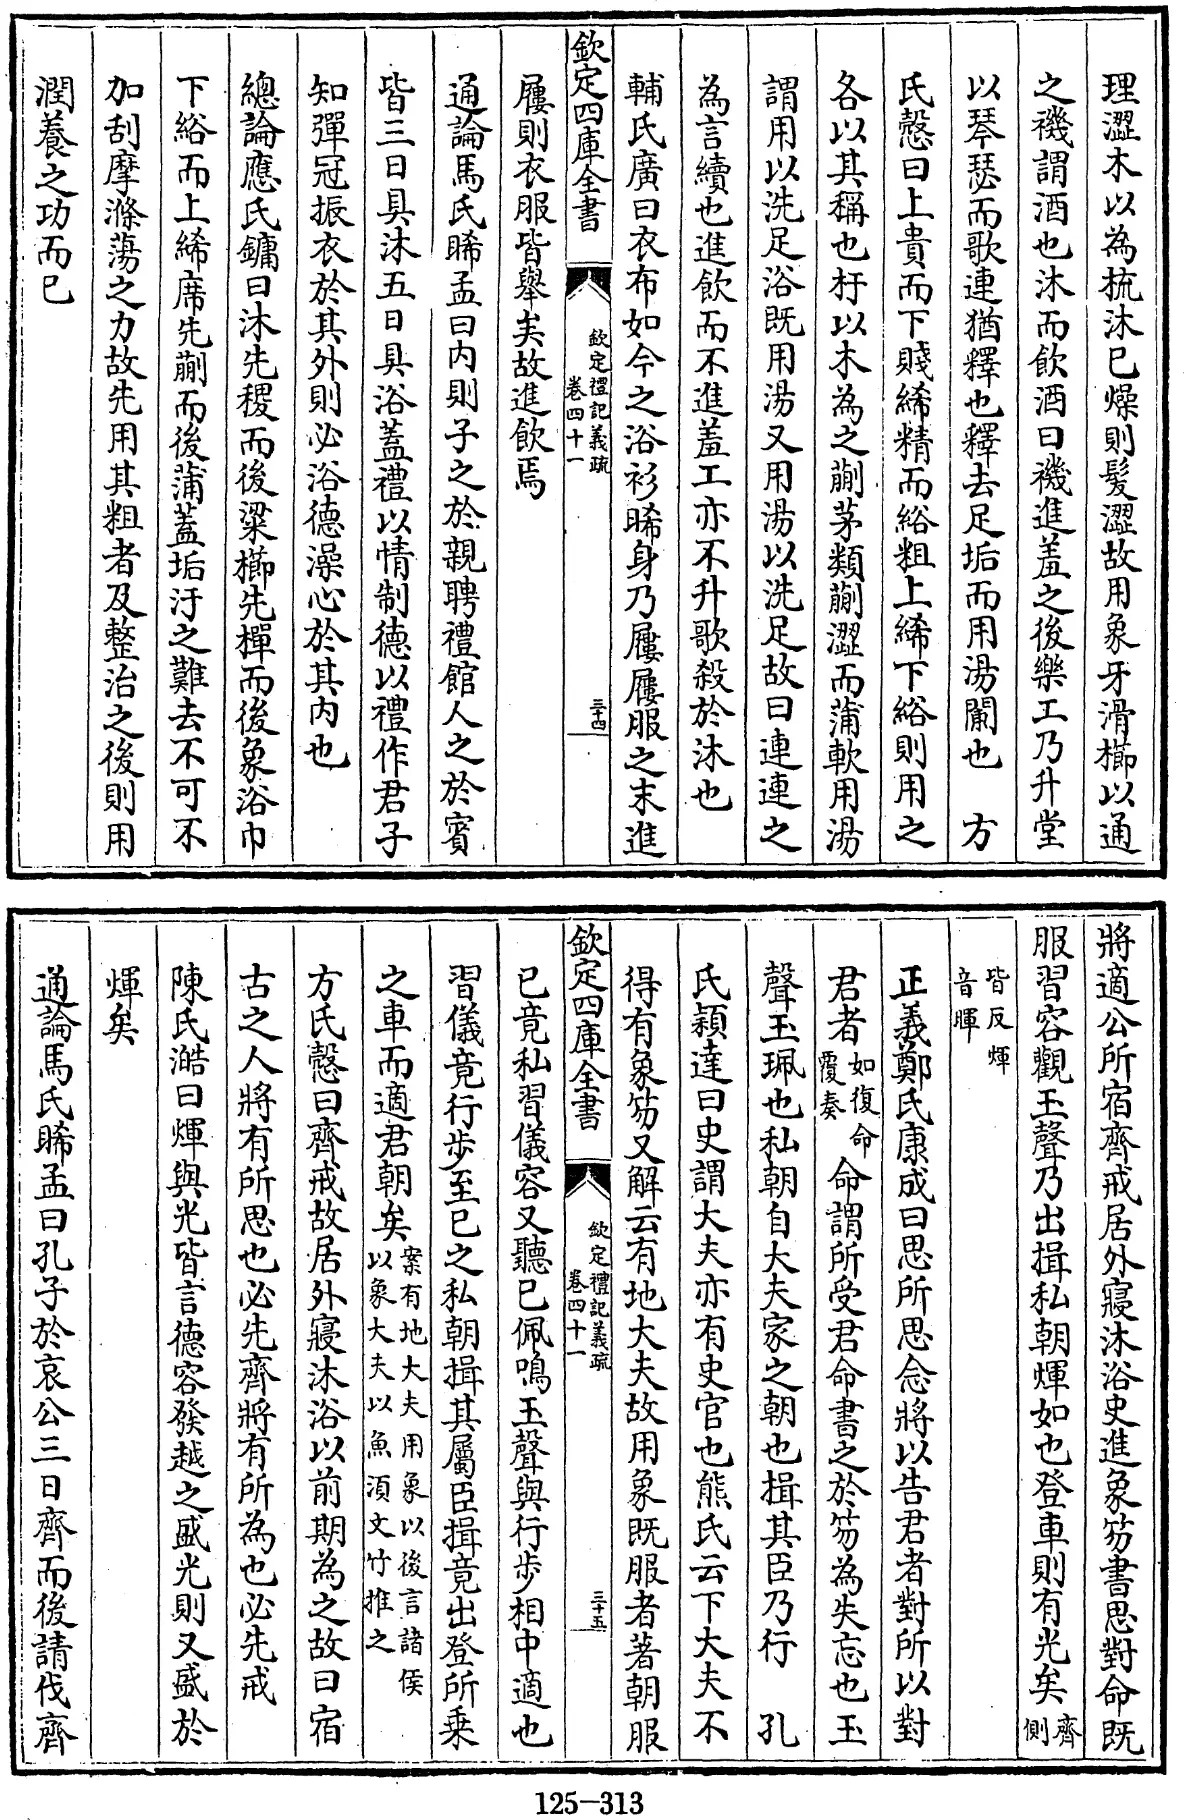 理澀木以為梳沐已燥則髮澀故用象牙滑櫛以通
之禨謂酒也沐而飲酒曰禨進羞之後樂工乃升堂
以琴瑟而歌連猶釋也釋去足垢而用湯闌也　方
氏慤曰上貴而下賤絺精而綌粗上絺下綌則用之
各以其稱也杅以木為之蒯茅類蒯澀而蒲軟用湯
謂用以洗足浴既用湯又用湯以洗足故曰連連之
為言續也進飲而不進羞工亦不升歌殺於沐也
輔氏廣曰衣布如今之浴衫晞身乃屨屨服之末進
欽定四庫全書
欽定禮記義疏
卷四十一
三十四
屨則衣服皆舉矣故進飲焉
通論馬氏晞孟曰内則子之於親聘禮館人之於賓
皆三日具沐五日具浴蓋禮以情制德以禮作君子
知彈冠振衣於其外則必浴德澡心於其内也
總論應氏鏞曰沐先稷而後粱櫛先樿而後象浴巾
下綌而上絺席先蒯而後蒲蓋垢汙之難去不可不
加刮摩滌蕩之力故先用其粗者及整治之後則用
潤養之功而已
將適公所宿齊戒居外寢沐浴史進象笏書思對命既
服習容觀玉聲乃出揖私朝煇如也登車則有光矣齊側
皆反煇
音暉
正義鄭氏康成曰思所思念將以告君者對所以對
君者如復命覆奏命謂所受君命書之於笏為失忘也玉
聲玉珮也私朝自大夫家之朝也揖其臣乃行　孔
氏穎達曰史謂大夫亦有史官也熊氏云下大夫不
得有象笏又解云有地大夫故用象既服者著朝服
欽定四庫全書
欽定禮記義疏
卷四十一
三十五
已竟私習儀容又聽已佩鳴玉聲與行步相中適也
習儀竟行步至已之私朝揖其屬臣揖竟出登所乗
之車而適君朝矣案有地大夫用象以後言諸侯以象大夫以魚須文竹推之
方氏慤曰齊戒故居外寢沐浴以前期為之故曰宿
古之人將有所思也必先齊將有所為也必先戒
陳氏澔曰煇與光皆言德容發越之盛光則又盛於
煇矣
通論馬氏晞孟曰孔子於哀公三日齊而後請伐齊
125-313